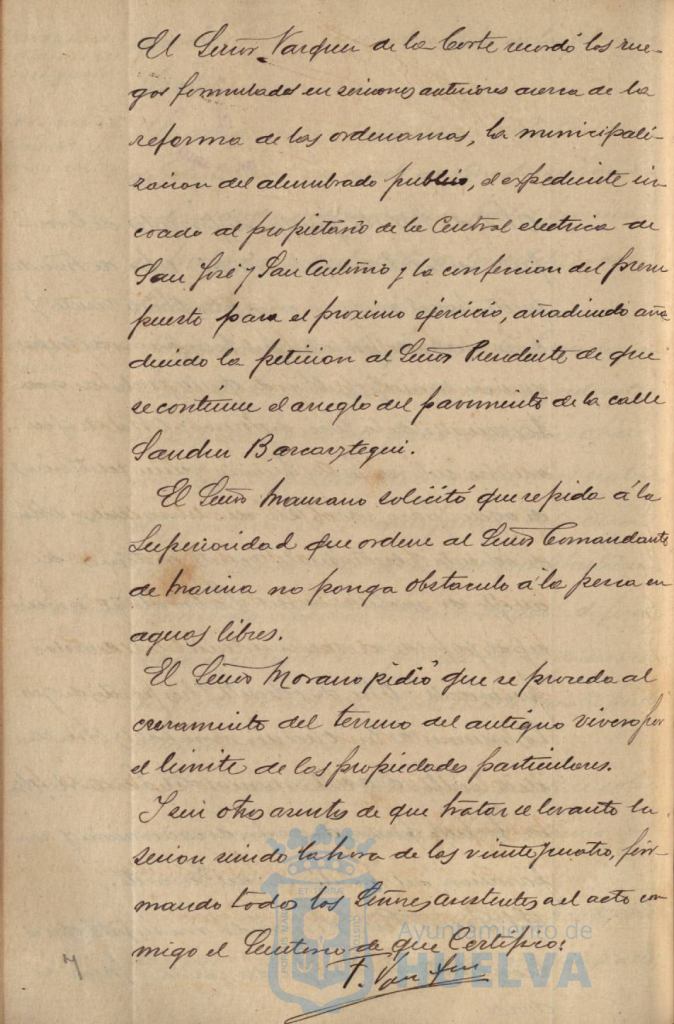 El Señor Vazquez de la Corte recordó los rue-
gos formulados en sesiones anteriores acerca de la
reforma de las ordenanzas, la municipali-
zacion del alumbrado publico, el expediente in-
coado al propietario de la Central electrica de
San José y San Antonio y la confeccion del presu
puesto para el proximo ejercicio, añadiendo aña
diendo la peticion al Señor Presidente de que
se continue el arreglo del pavimento de la calle
Sanchez Barcaiztegui.
El Señor Manzano solicitó que se pida á la
Superioridad que ordene al Señor Comandante
de Marina no ponga obstaculo á la pesca en
aguas libres.
El Señor Morano pidió que se proceda al
cerramiento del terreno del antiguo vivero por
el limite de las propiedades particulares.
Y sin otros asuntos de que tratar se levanto la
sesion siendo la hora de las veinte y cuatro, fir-
mando todos los Señores asistentes a el acto con
migo el Secretario de que Certifico:
Ayuntamiento de
HUELVA